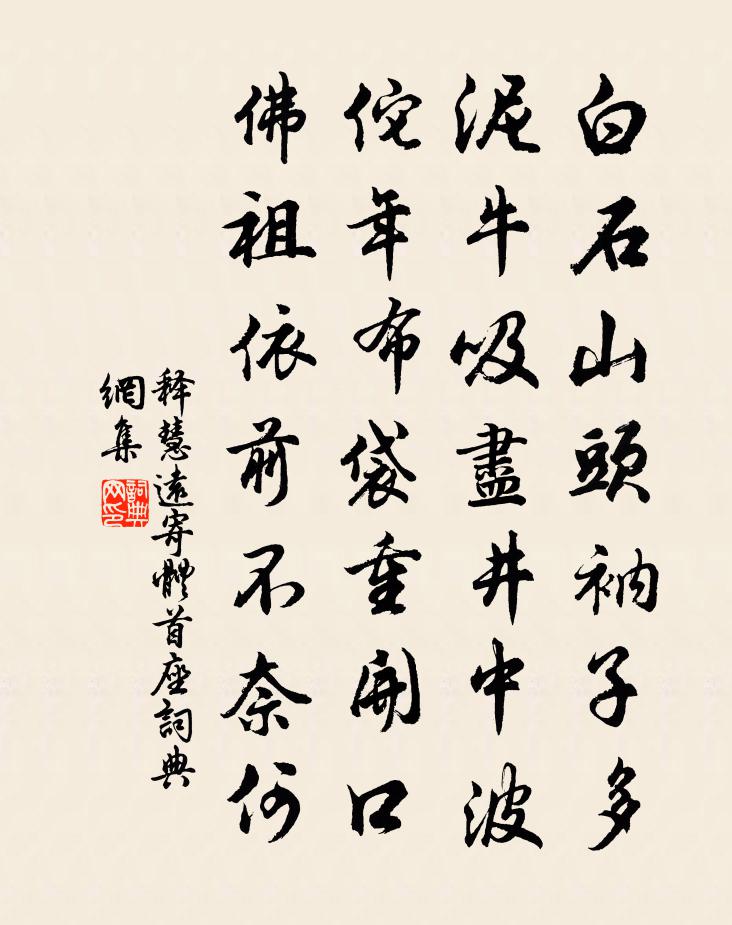 白石山頭衲子多
泥牛吸盡井中波
佗年布袋重開口
佛祖依前不奈何
释慧遠寄體首座詞典
網集
詞典網印